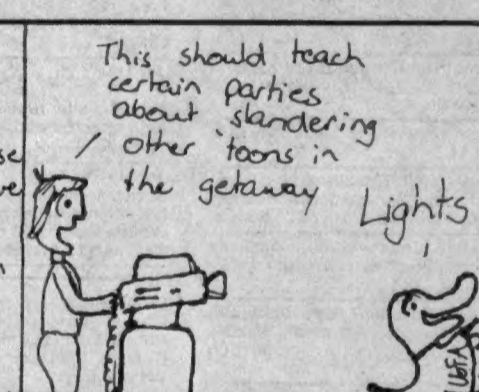 This should teach
certain parties
about slandering
other 'toons in
the getaway
Lights